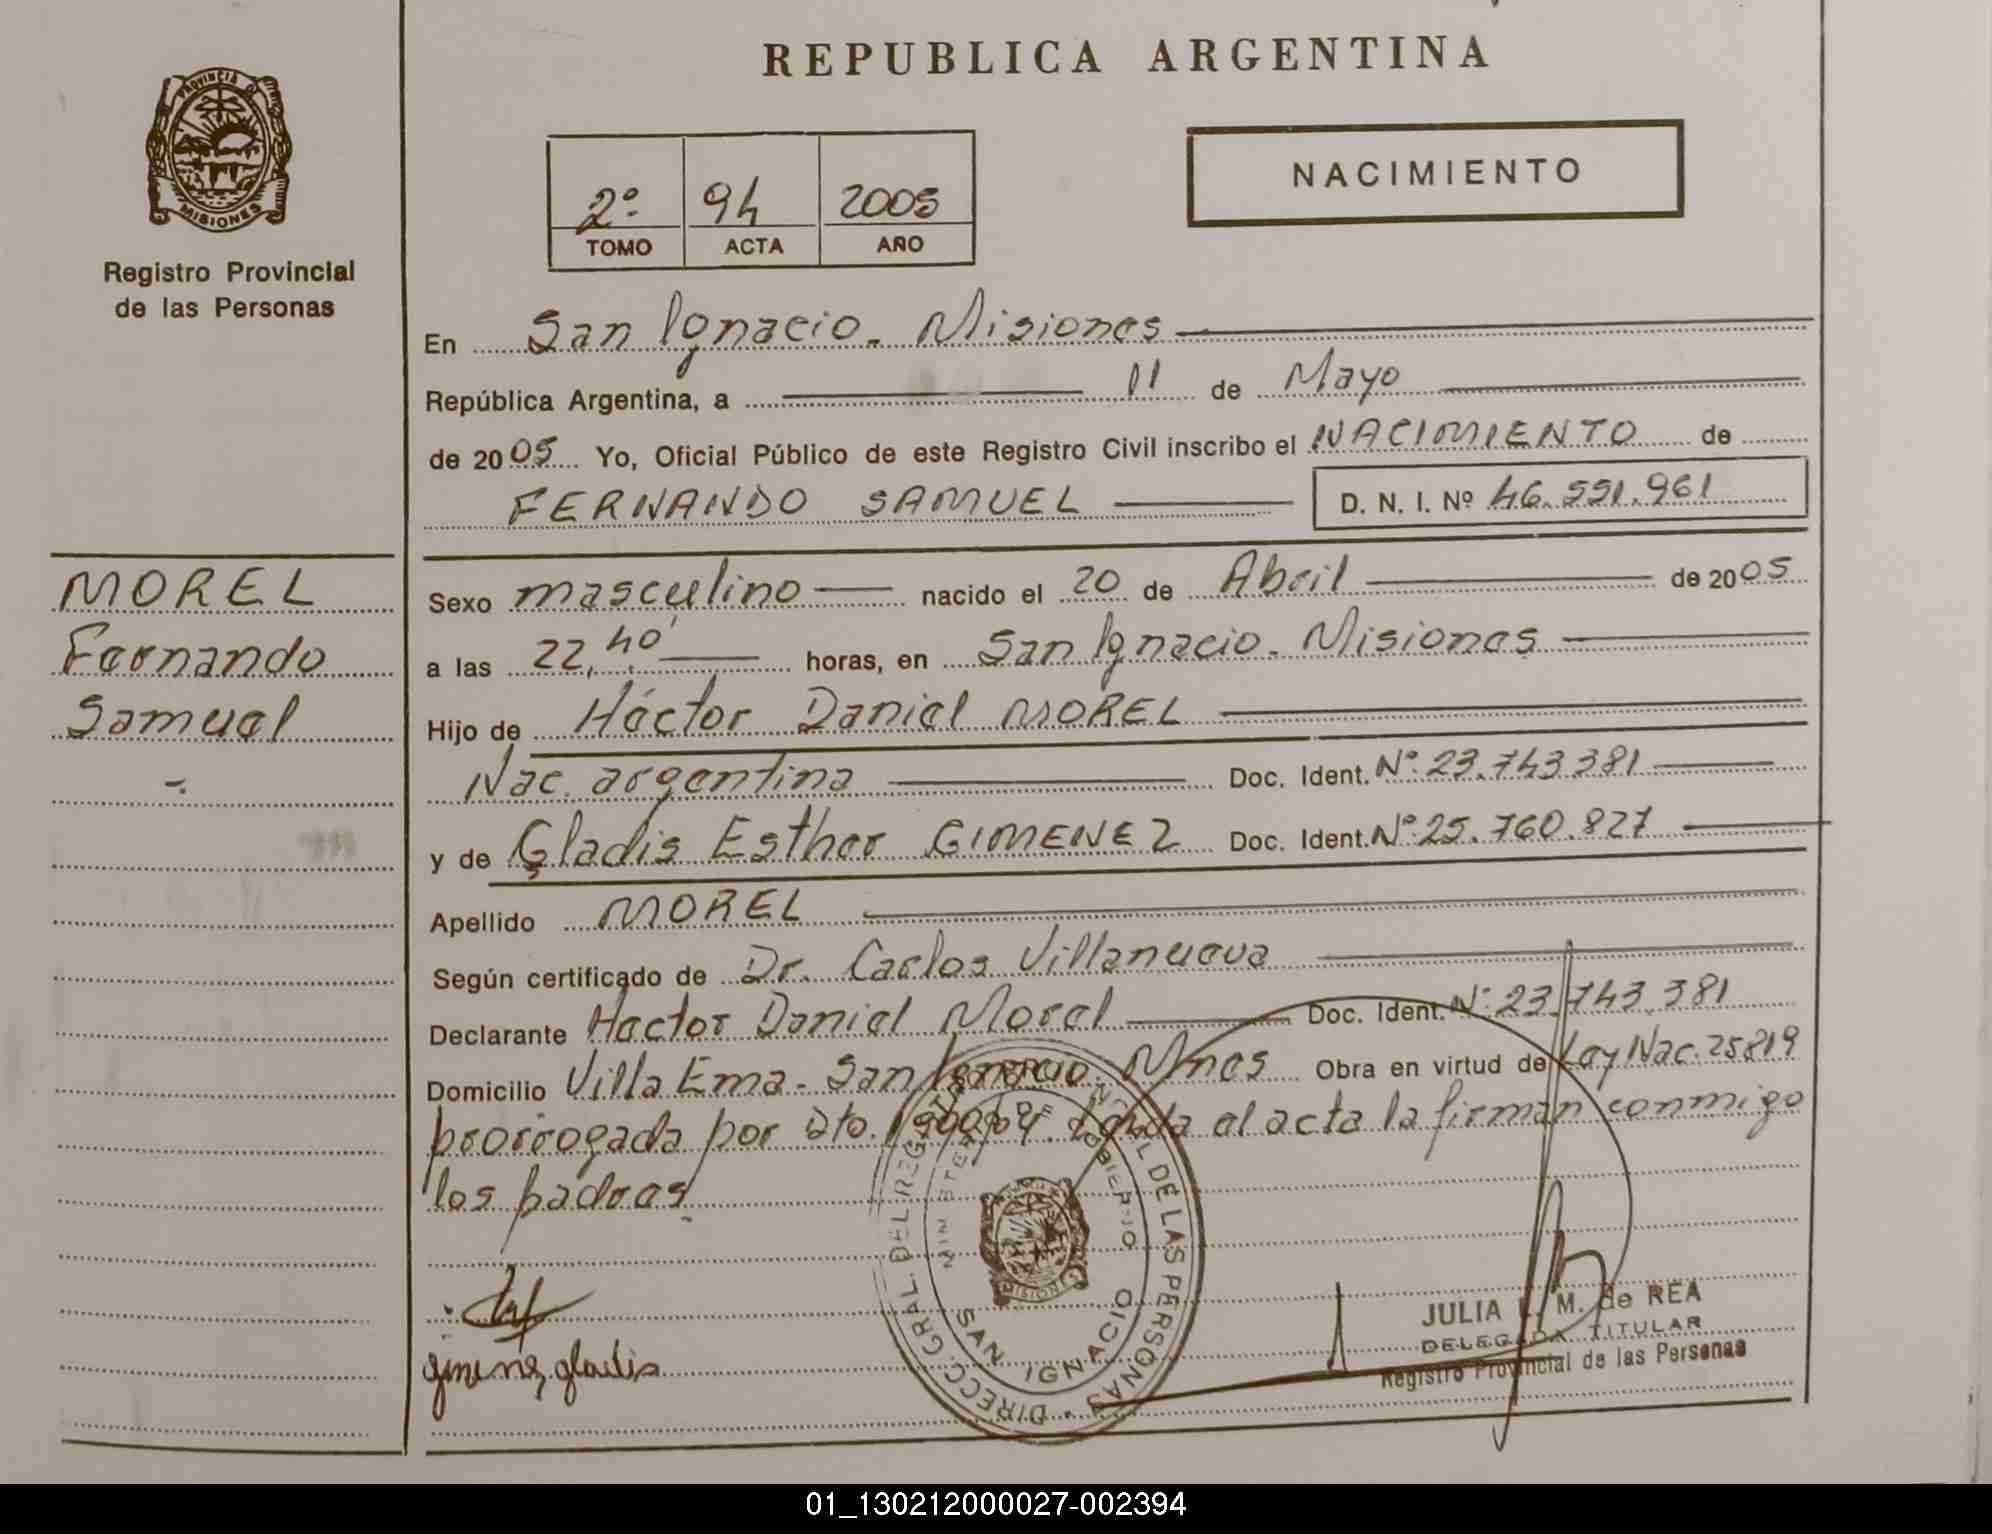 REPUBLICA ARGENTINA
PROVINCIA DE
MISIONES
Registro Provincial
de las Personas
NACIMIENTO
2º 94 2005
TOMO ACTA AÑO
En San Ignacio. Misiones
República Argentina, a 11 de Mayo
de 2005 Yo, Oficial Público de este Registro Civil inscribo el NACIMIENTO de
FERNANDO SAMUEL D. N. I. Nº 46.551.961
MOREL
Fernando
Samuel
Sexo masculino nacido el 20 de Abril de 2005
a las 22,40' horas, en San Ignacio. Misiones
Hijo de Héctor Daniel MOREL
Nac. argentina Doc. Ident. Nº 23.743.381
y de Gladis Esther GIMENEZ Doc. Ident. Nº 25.760.827
Apellido MOREL
Según certificado de Dr. Carlos Villanueva
Declarante Hector Daniel Morel Doc. Ident. Nº 23.743.381
Domicilio Villa Ema. San Ignacio. Mnes Obra en virtud de Ley Nac. 25819
prorrogada por Dto. Leída el acta la firman conmigo
los padres.
gimenez gladis
DIRECC. GRAL. DEL REG. PROVINCIAL DE LAS PERSONAS
MINISTERIO DE GOBIERNO
MISIONES
SAN IGNACIO
JULIA L. M. de REA
DELEGADA TITULAR
Registro Provincial de las Personas
01_130212000027-002394